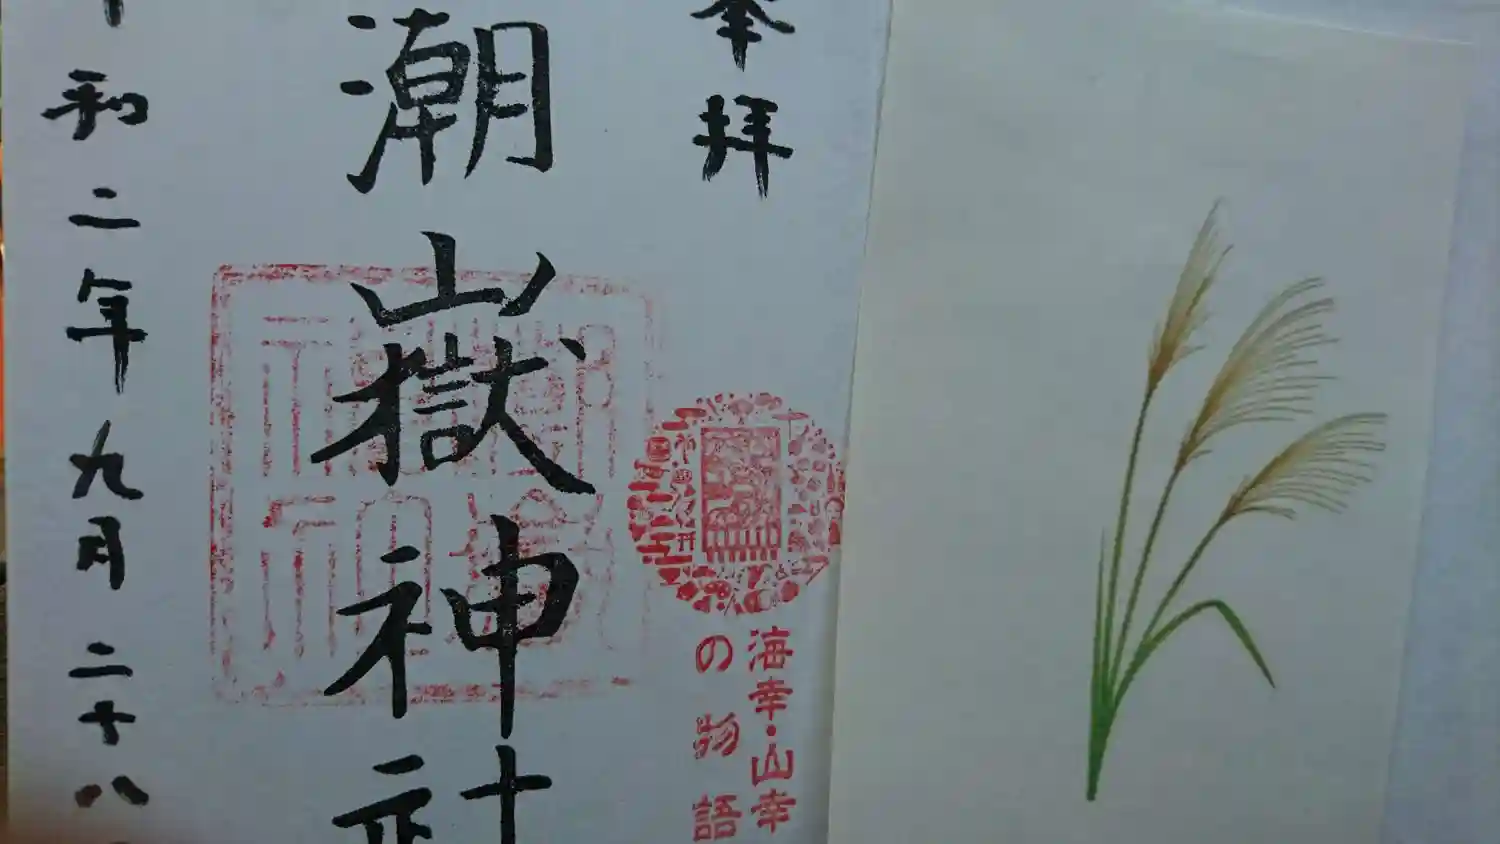 奉拝
潮嶽神社
海幸・山幸
の物語
和二年九月二十八